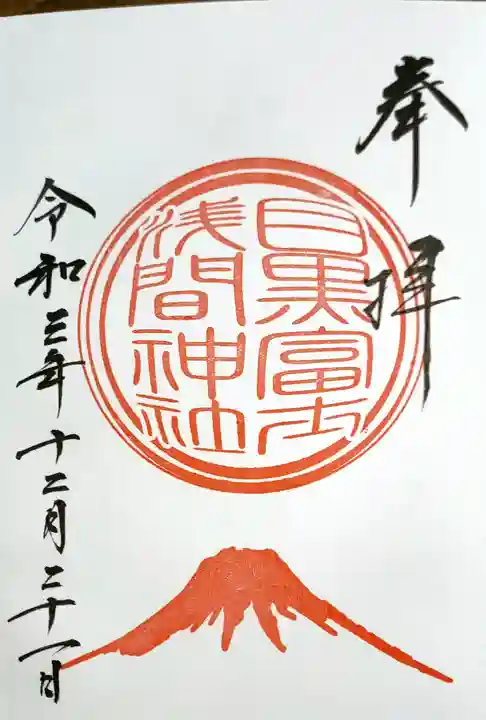 奉拝
目黒富士
浅間神社
令和三年十二月二十一日